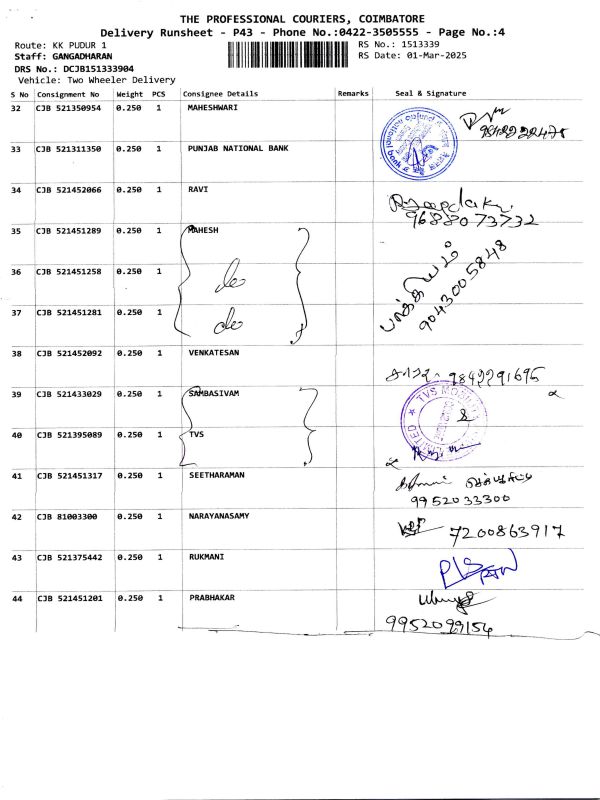 THE PROFESSIONAL COURIERS, COIMBATORE
Delivery Runsheet - P43 - Phone No.:0422-3505555 - Page No.:4
Route: KK PUDUR 1
RS No.: 1513339
Staff: GANGADHARAN
RS Date: 01-Mar-2025
DRS No.: DCJB151333904
Vehicle: Two Wheeler Delivery
S No Consignment No Weight PCS Consignee Details Remarks Seal & Signature
32 CJB 521350954 0.250 1 MAHESHWARI
33 CJB 521311350 0.250 1 PUNJAB NATIONAL BANK
34 CJB 521452066 0.250 1 RAVI
9688073732
35 CJB 521451289 0.250 1 MAHESH
36 CJB 521451258 0.250 1 do
9043005848
37 CJB 521451281 0.250 1 do
38 CJB 521452092 0.250 1 VENKATESAN
9842291695
39 CJB 521433029 0.250 1 SAMBASIVAM
40 CJB 521395089 0.250 1 TVS
41 CJB 521451317 0.250 1 SEETHARAMAN
9952033300
42 CJB 81003300 0.250 1 NARAYANASAMY
7200863917
43 CJB 521375442 0.250 1 RUKMANI
44 CJB 521451201 0.250 1 PRABHAKAR
9952099154